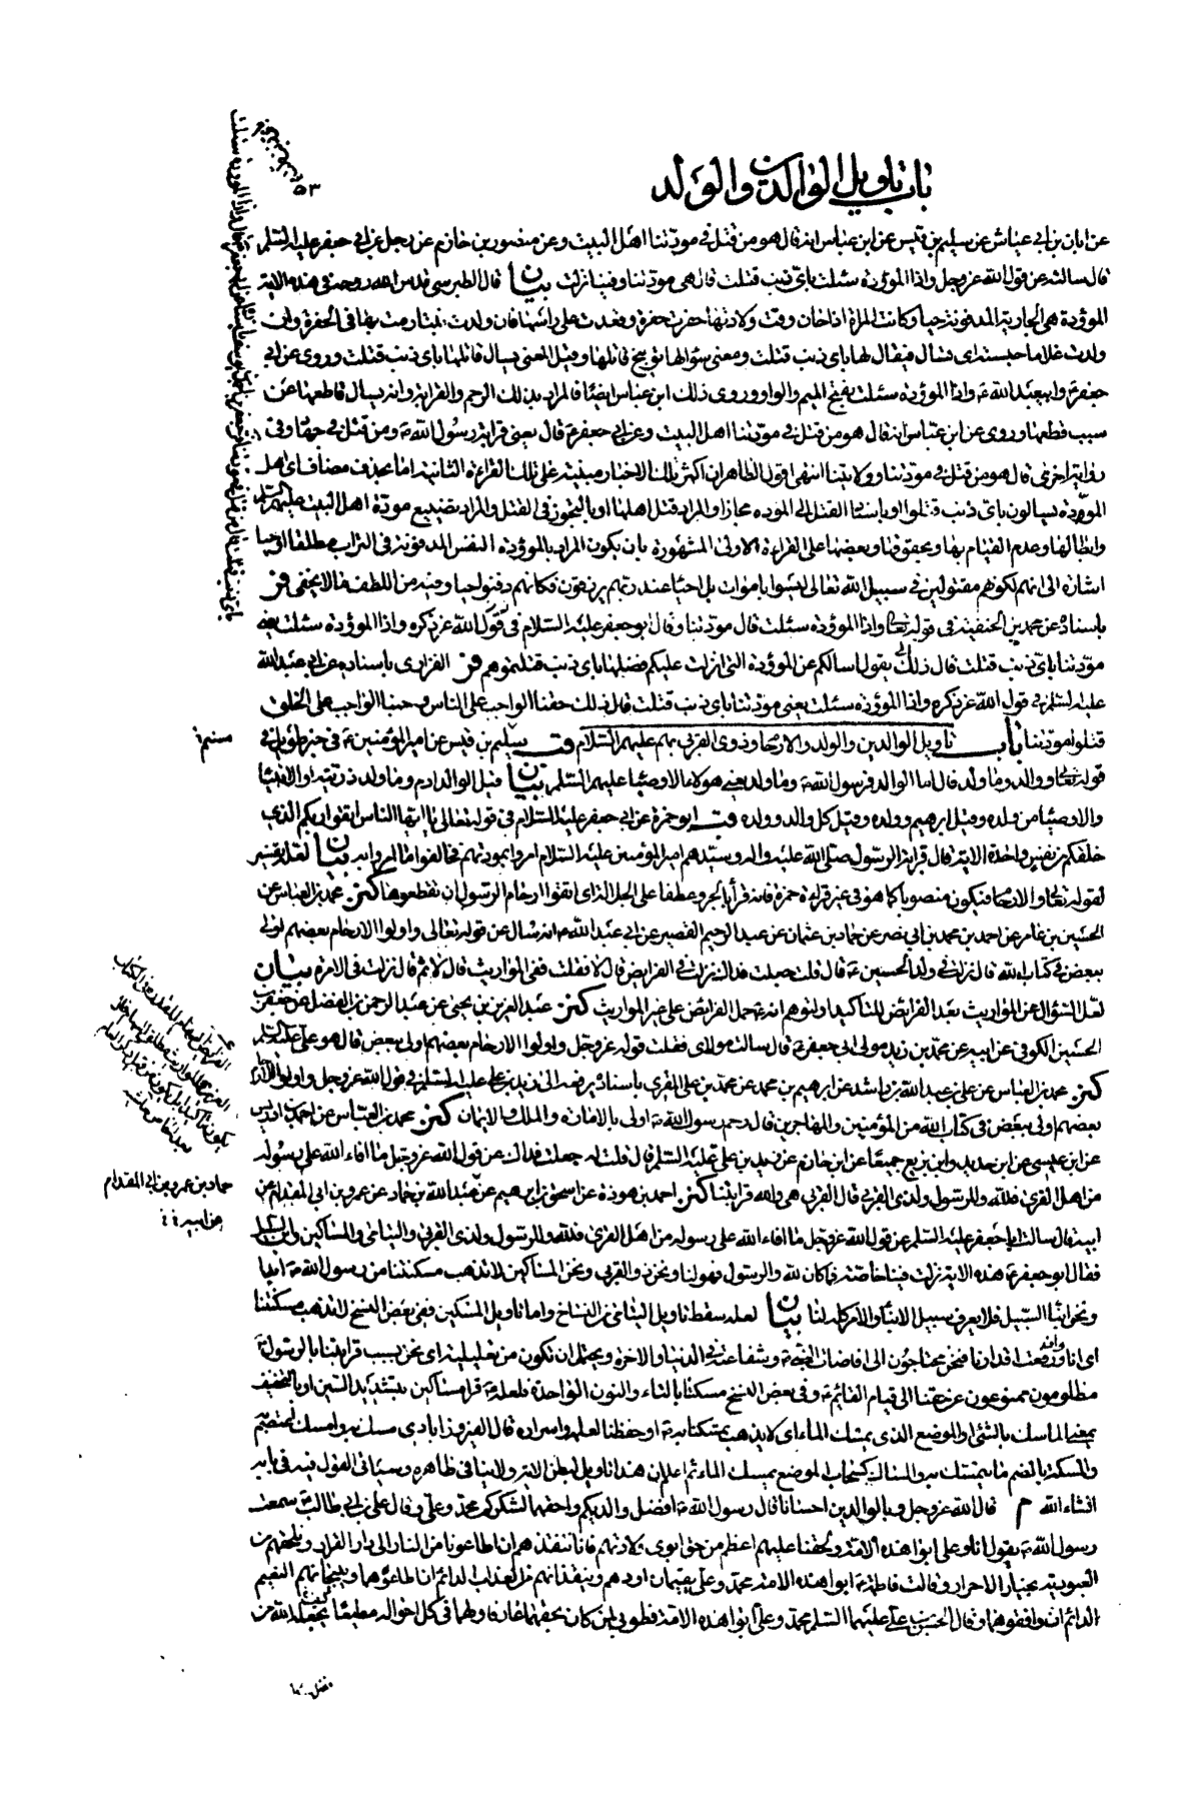 باب تاويل الوالدين والولد
٥٣
عن ابان بن ابي عياش عن سليم بن قيس عن ابن عباس انه قال هو من قتل في مودتنا اهل البيت وعن منصور بن حازم عن رجل عن ابي جعفر عليه السلم
قال سالته عن قول الله عز وجل واذا الموؤدة سئلت باي ذنب قتلت قال هي مودتنا وفينا نزلت بيان قال الطبرسي قدس الله روحه في هذه الاية
الموؤدة هي الجارية المدفونة حيا وكانت المراة اذا حان وقت ولادتها حفرت حفرة وقعدت على راسها فان ولدت بنتا رمت بها في الحفرة وان
ولدت غلاما حبسته اي تسال فيقال لها باي ذنب قتلت ومعنى سؤالها توبيخ قاتلها وقيل المعنى يسال قاتلها باي ذنب قتلت وروي عن ابي
جعفر وابي عبد الله ع واذا الموؤدة سئلت بفتح الميم والواو وروى ذلك ابن عباس ايضا فالمراد بذلك الرحم والقرابة وانه يسال قاطعها عن
سبب قطعها وروي عن ابن عباس انه قال هو من قتل في مودتنا اهل البيت وعن ابي جعفر ع قال يعني قرابة رسول الله ص ومن قتل في جهاد وفي
رواية اخرى قال هو من قتل في مودتنا وولايتنا انتهى اقول الظاهر ان اكثر تلك الاخبار مبنية على تلك القراءة الثانية اما بحذف مضاف اي اهل
المودة يسالون باي ذنب قتلوا او باسناد القتل الى المودة مجازا والمراد قتل اهلها او بالتجوز في القتل والمراد تضييع مودة اهل البيت عليهم السلم
وابطالها وعدم القيام بها وبحقوقها وبعضها على القراءة الاولى المشهورة بان يكون المراد بالموؤدة النفس المدفونة في التراب مطلقا او حيا
اشارة الى انهم لكونهم مقتولين في سبيل الله تعالى ليسوا باموات بل احياء عند ربهم يرزقون فكانهم دفنوا حيا وفيه من اللطف ما لا يخفى فر
باسناده عن محمد بن الحنفية في قوله تعالى واذا الموؤدة سئلت قال مودتنا وقال ابو جعفر عليه السلام في قول الله عز ذكره واذا الموؤدة سئلت يعني
مودتنا باي ذنب قتلت قال ذلك يقول اسالكم عن الموؤدة التي انزلت عليكم فضلها باي ذنب قتلتموهم فر الفزاري باسناده عن ابي عبد الله
عليه السلم في قول الله عز ذكره واذا الموؤدة سئلت يعني مودتنا باي ذنب قتلت قال ذلك حقنا الواجب على الناس وحبنا الواجب على الخلق
قتلوا مودتنا باب تاويل الوالدين والولد والارحام وذوي القربى بهم عليهم السلام قب سليم بن قيس عن امير المؤمنين ع في خبر طويل في
قوله تعالى ووالد وما ولد قال اما الوالد فرسول الله ص وما ولد يعني هؤلاء الاوصياء عليهم السلم بيان قيل الوالد ادم وما ولد ذريته او الانبياء
والاوصياء من ولده وقيل ابرهيم وولده وقيل كل والد وولده قب ابو حمزة عن ابي جعفر عليه السلام في قوله تعالى يا ايها الناس اتقوا ربكم الذي
خلقكم من نفس واحدة الاية قال قرابة الرسول صلى الله عليه واله وسيدهم امير المؤمنين عليه السلام امروا بمودتهم فخالفوا ما امروا به بيان لعله تفسير
لقوله تعالى والارحام فيكون منصوبا كما هو في غير قراءة حمزة فانه قرا بالجر وعطفا على الجلالة اي اتقوا ارحام الرسول ان تقطعوها كنز محمد بن العباس عن
الحسين بن عامر عن احمد بن محمد بن ابي نصر عن حماد بن عثمان عن عبد الرحيم القصير عن ابي عبد الله ع انه سال عن قوله تعالى واولوا الارحام بعضهم اولى
ببعض في كتاب الله قال نزلت في ولد الحسين ع قال قلت جعلت فداك نزلت في الفرايض قال لا فقلت ففي المواريث قال لا ثم قال نزلت في الامرة بيان
لعل السؤال عن المواريث بعد الفرايض للتاكيد او لتوهم انه ع حمل الفرايض على غير المواريث كنز عبد العزيز بن يحيى عن عبد الرحمن بن الفضل عن جعفر بن
الحسين الكوفي عن ابيه عن محمد بن زيد مولى ابي جعفر ع قال سالت مولاي فقلت قوله عز وجل واولوا الارحام بعضهم اولى ببعض قال هو علي عليه السلم
كنز محمد بن العباس عن علي بن عبد الله بن راشد عن ابرهيم بن محمد عن محمد بن علي المقري باسناده يرفعه الى زيد بن علي عليه السلم في قول الله عز وجل واولوا الارحام
بعضهم اولى ببعض في كتاب الله من المؤمنين والمهاجرين قال رحم رسول الله ص اولى بالامارة والملك والايمان كنز محمد بن العباس عن احمد بن ادريس
عن ابن عيسى عن ابن حديد وابن بزيع جميعا عن ابن حازم عن زيد بن علي عليه السلم قال قلت له جعلت فداك عن قول الله عز وجل ما افاء الله على رسوله
من اهل القرى فلله وللرسول ولذي القربى قال القربى هي والله قرابتنا كنز احمد بن هوذة عن اسحق بن ابرهيم عن عبد الله بن حماد عن عمرو بن ابي المقدام عن
ابيه قال سالت ابا جعفر عليه السلم عن قول الله عز وجل ما افاء الله على رسوله من اهل القرى فلله وللرسول ولذي القربى واليتامى والمساكين وابن السبيل
فقال ابو جعفر ع هذه الاية نزلت فينا خاصة فما كان لله وللرسول فهو لنا ونحن ذو القربى ونحن المساكين لا تذهب مسكنتنا من رسول الله ص ابدا
ونحن ابناء السبيل فلا يعرف سبيل الا بنا والامر كله لنا بيان لعله سقط تاويل اليتامى من النساخ واما تاويل المسكين ففي بعض النسخ لا تذهب مسكنتنا
اي انا وان دفعت اقدارنا فنحن محتاجون الى افاضات النبي ص وشفاعته في الدنيا والاخرة ويحتمل ان تكون من تعليلية اي نحن بسبب قرابتنا بالرسول ص
مظلومون ممنوعون عن حقنا الى قيام القائم ع وفي بعض النسخ مسكنا بالتاء والنون الواحدة فلعله ع قرا مساكين بتشديد السين او بالتخفيف
بمعنى الماسك بالشئ او الموضع الذي يمسك الماء اي لا يذهب تمسكنا به ص او حفظنا لعلمه واسراره قال الفيروزابادي مسك به وامسك اعتصم
والمسكة بالضم ما يتمسك به والمساك كسحاب الموضع يمسك الماء ثم اعلم ان هذا تاويل لبطن الاية ولا ينافي ظاهره وسياتي القول فيه في بابه
انشاء الله م قال الله عز وجل وبالوالدين احسانا قال رسول الله ص افضل والديكم واحقهما لشكركم محمد وعلي وقال علي بن ابي طالب ع سمعت
رسول الله ص يقول انا وعلي ابوا هذه الامة ولحقنا عليهم اعظم من حق ابوي ولادتهم فانا ننقذهم ان اطاعونا من النار الى دار القرار ونلحقهم من
العبودية بخيار الاحرار وقالت فاطمة ع ابوا هذه الامة محمد وعلي يقيمان اودهم وينقذانهم من العذاب الدائم ان اطاعوهما ويبيحانهم النعيم
الدائم ان وافقوهما وقال الحسن بن علي عليهما السلم محمد وعلي ابوا هذه الامة فطوبى لمن كان بحقهما عارفا ولهما في كل احواله مطيعا يجعله الله من
حماد بن عمرو بن ابي المقدام
عن ابيه